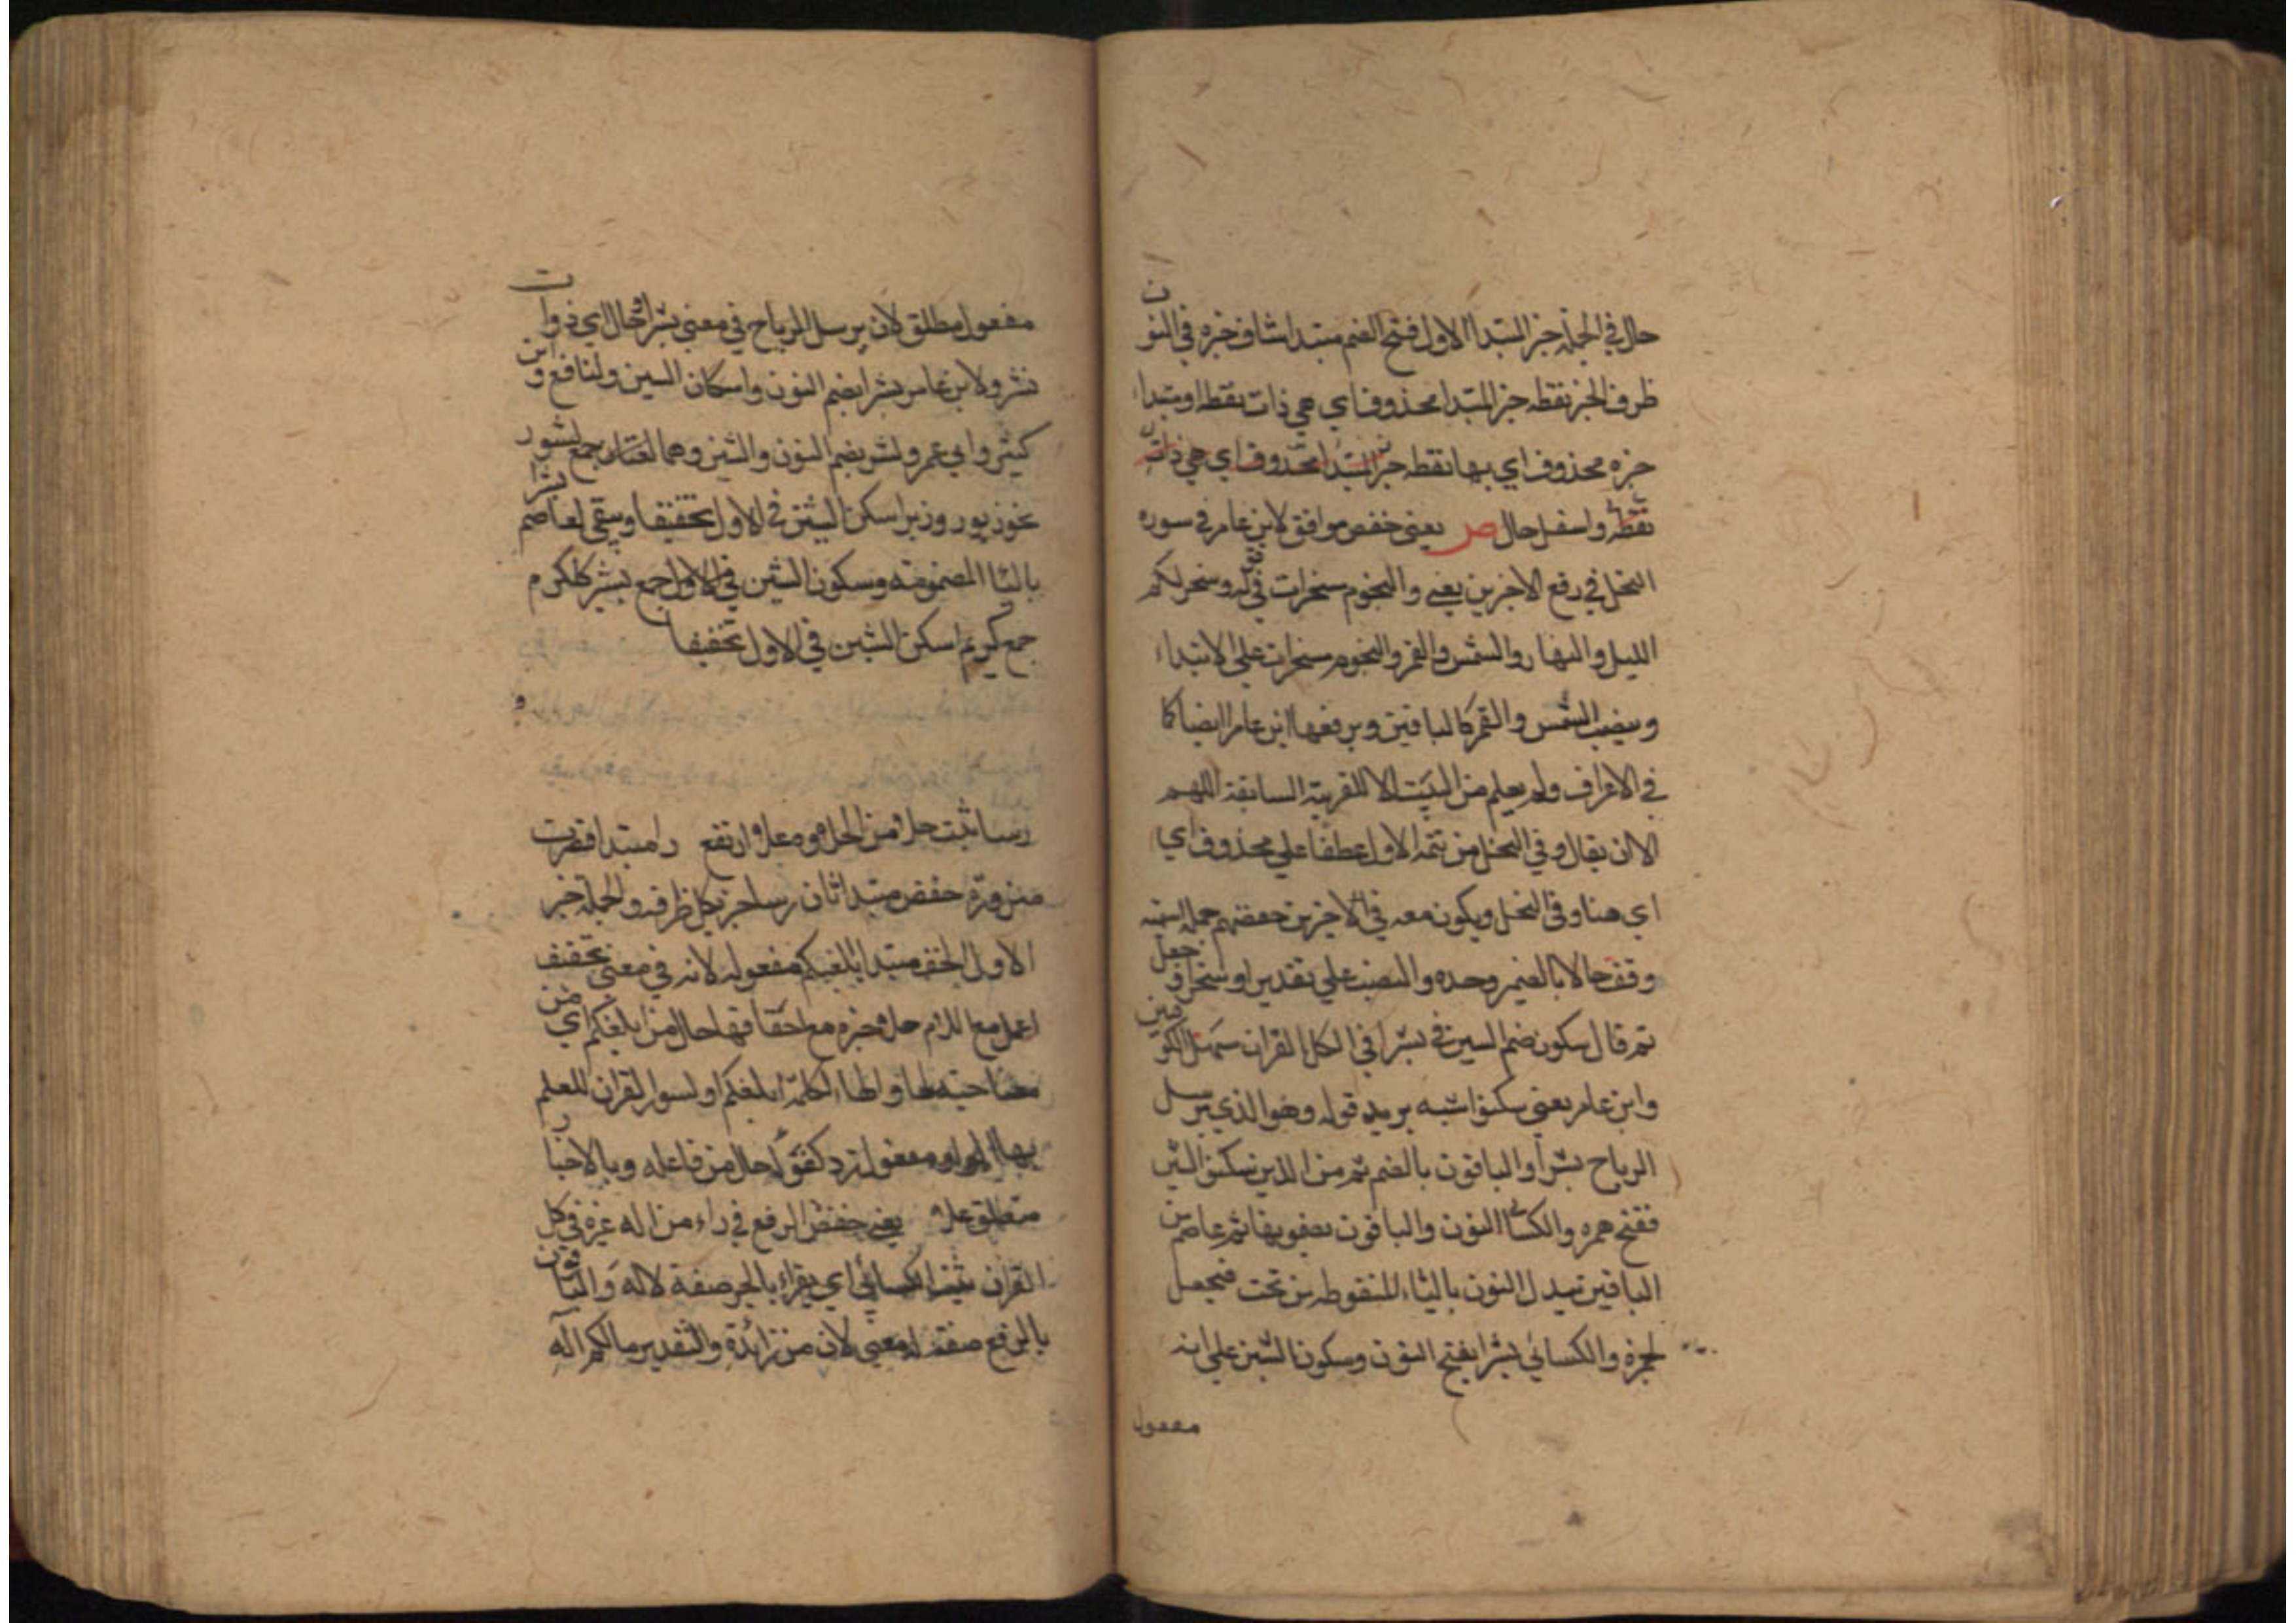 حال في الجملة خبر المبتدا الاول فتح الضم مبتدا شاف خبره في النون
ظرف الخبر نقطه خبر المبتدا محذوف اي هي ذات نقطه او مبتداء
خبره محذوف اي بها نقطه خبر المبتدا محذوف اي هي ذات
نقطه واسفل حال ص يعني حفص موافق لابن عامر في سوره
النحل في رفع الاخرين يعني والنجوم مسخرات في قوله وسخر لكم
الليل والنهار والشمس والقمر والنجوم مسخرات علي الابتداء
وينصب الشمس والقمر كالباقين ويرفعها ابن عامر ايضا كما
في الاعراف ولم يعلم من البيت الا للقرينة السابقة اللهم
الا ان يقال وفي النحل من تتمه الاول عطفا علي محذوف اي
اي هنا وفي النحل ويكون معه في الاخرين حفصهم جمله اسميه
وقفت حالا بالضمير وحده والنصب علي تقدير او سخر او جعل
ثم قال سكون ضم الشين في نشرا في الكل القران سهل الكوفين
وابن عامر يعني سكنوا شينه يريد قوله وهو الذي يرسل
الرياح نشرا والباقون بالضم ثم من الذين سكنوا الشين
ففتح حمزه والكسائي النون والباقون يضمونها ثم عاصم من
الباقين تبدل النون بالباء المنقوطه من تحت فيجعل
لحمزه والكسائي نشرا بفتح النون وسكون الشين علي انه
مفعول
مفعول مطلق لان يرسل الرياح في معني نشر او حال اي ذوات
نشر ولابن عامر نشرا بضم النون واسكان الشين ولنافع وابن
كثير وابي عمرو نشر بضم النون والشين وهما لغتان جمع نشور
نحو زبور وزبر اسكن الشين في الاول تخفيفا وبقي لعاصم بشرا
بالباء المضمومه وسكون الشين في الاول جمع بشير ككرم
جمع كريم اسكن الشين في الاول تخفيفا
و
رسا ثبت حلا من الحلاوه علا ارتفع را مبتدا قصرت
ضرورة خفض مبتدا ثان رسا خبر بكل ظرفه والجملة خبر
الاول الخف مبتدا ابلغكم مفعوله لانه في معني تخفيف
اعمل مع اللام حلا خبره مع احقافها حال من ابلغكم اي من
مصاحبه لها والهاء لكلمة ابلغكم او لسور القران للعلم
بها مفعول زد كفؤا حال من فاعله وبالاخبار
متعلق علا يعني خفض الرفع في راء من اله غيره في كل
القران الكسائي اي يقراء بالجر صفة لاله والباقون
بالرفع صفته له معني لان من زائدة والتقدير مالكم اله